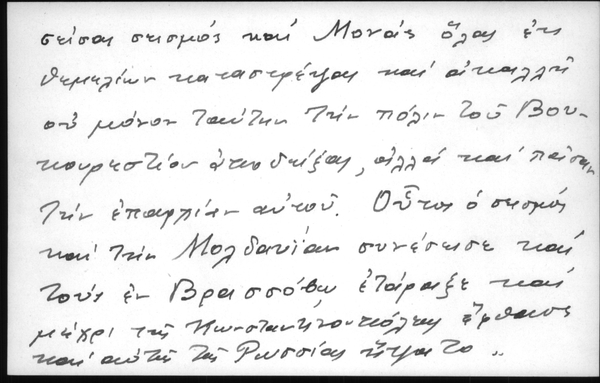 σείσας σεισμός καί Μονάς ὅλας ἐκ
θεμελίων καταστρέψας καί ἀκαλλῆ
οὐ μόνον ταύτην τήν πόλιν τοῦ Βου-
κουρεστίου ἀποδείξας, ἀλλά καί πᾶσαν
τήν ἐπαρχίαν αὐτοῦ. Οὗτος ὁ σεισμός
καί τήν Μολδαυΐαν συνέσεισε καί
τούς ἐν Βρασσόβῳ ἐτάραξε καί
μέχρι τῆς Κωνσταντινουπόλεως ἔφθασε
καί αὐτῆς τῆς Ρωσσίας ἥψατο..